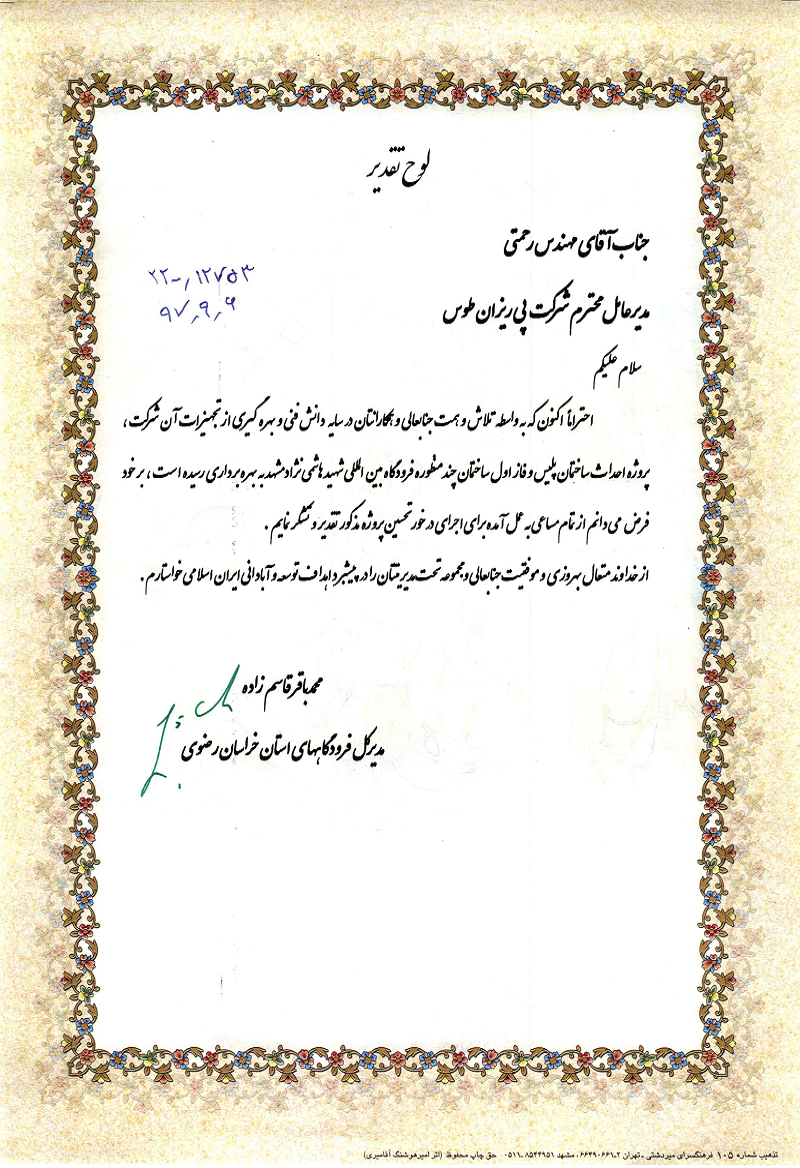 لوح تقدیر
جناب آقای مهندس رحمتی
۲۲۰۰/۱۲۷۵۳
مدیرعامل محترم شرکت پی ریزان طوس
۹۷/۹/۶
سلام علیکم
احتراماً اکنون که به واسطه تلاش و همت جنابعالی و همکارانتان در سایه دانش فنی و بهره گیری از تجهیزات آن شرکت ،
پروژه احداث ساختمان پلیس و فاز اول ساختمان چند منظوره فرودگاه بین المللی شهید هاشمی نژاد مشهد به بهره برداری رسیده است ، بر خود
فرض می دانم از تمام مساعی به عمل آمده برای اجرای در خور تحسین پروژه مذکور تقدیر و تشکر نمایم .
از خداوند متعال بهروزی و موفقیت جنابعالی و مجموعه تحت مدیریتتان را در پیشبرد اهداف توسعه و آبادانی ایران اسلامی خواستارم .
محمدباقر قاسم زاده
مدیرکل فرودگاههای استان خراسان رضوی
تذهیب شماره ۱۰۵ فرهنگسرای میردشتی ـ تهران ۲ـ۶۶۴۹۰۶۶۱ ، مشهد ۸۵۴۴۹۵۱ـ۰۵۱۱ حق چاپ محفوظ (اثر امیرهوشنگ آقامیری)